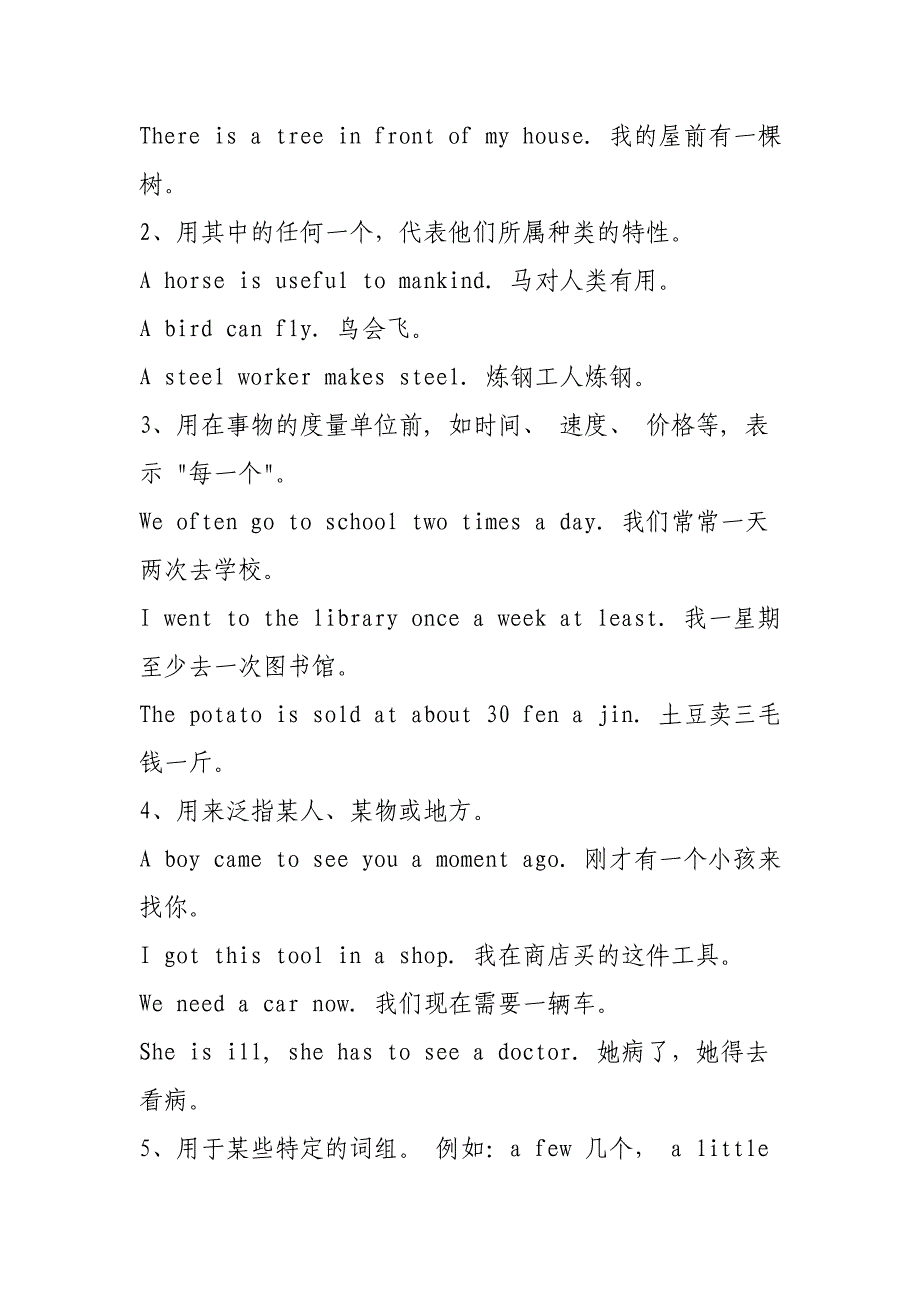 There is a tree in front of my house. 我的屋前有一棵
树。
2、用其中的任何一个，代表他们所属种类的特性。
A horse is useful to mankind. 马对人类有用。
A bird can fly. 鸟会飞。
A steel worker makes steel. 炼钢工人炼钢。
3、用在事物的度量单位前, 如时间、 速度、 价格等, 表
示 "每一个"。
We often go to school two times a day. 我们常常一天
两次去学校。
I went to the library once a week at least. 我一星期
至少去一次图书馆。
The potato is sold at about 30 fen a jin. 土豆卖三毛
钱一斤。
4、用来泛指某人、某物或地方。
A boy came to see you a moment ago. 刚才有一个小孩来
找你。
I got this tool in a shop. 我在商店买的这件工具。
We need a car now. 我们现在需要一辆车。
She is ill, she has to see a doctor. 她病了，她得去
看病。
5、用于某些特定的词组。 例如: a few 几个， a little